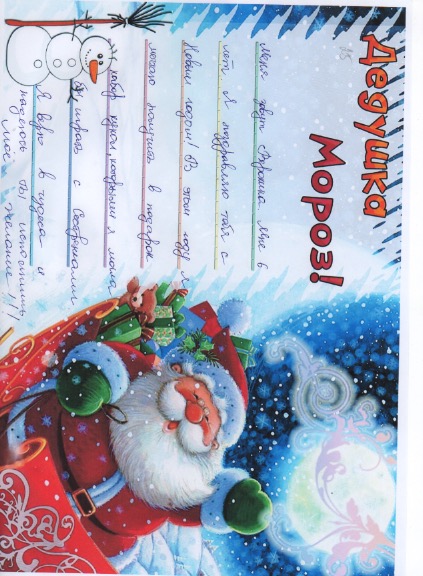 Дедушка
Мороз!
Меня зовут Варюша мне 6
лет. Я поздравляю тебя с
Новым годом! В этом году я
мечтаю получить в подарок
набор кукол, которыми я могла
бы играть с сестрёнками
Я верю в чудеса и
надеюсь ты исполнишь
моё желание!!!